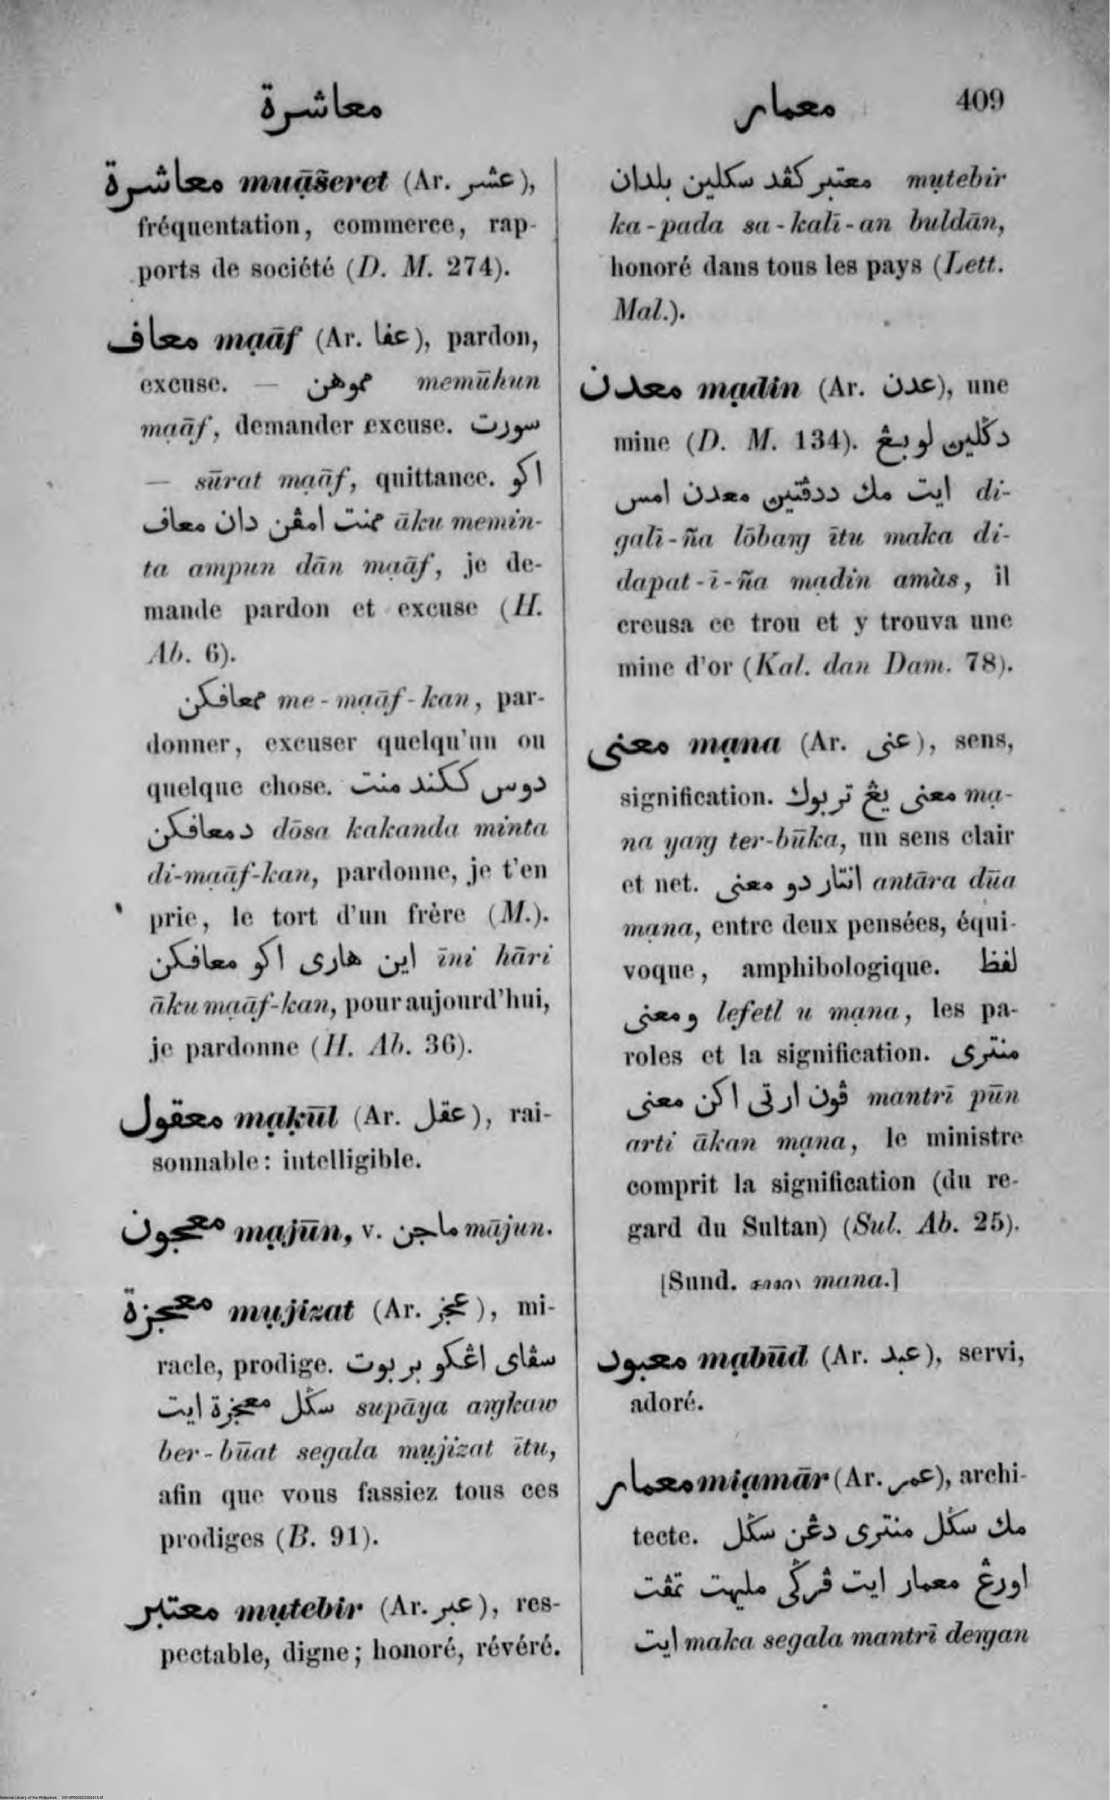 معاشرة
معمار 409
معاشرة muạ̄šeret (Ar. عشر),
fréquentation, commerce, rap-
ports de société (D. M. 274).
معاف mạāf (Ar. عفا), pardon,
excuse. — مموهن memūhun
mạāf, demander excuse. سورت
— sūrat mạāf, quittance. اكو
ممنت امڤن دان معاف āku memin-
ta ampun dān mạāf, je de-
mande pardon et excuse (H.
Ab. 6).
ممعافكن me-mạāf-kan, par-
donner, excuser quelqu'un ou
quelque chose. دوس ككند منت
دمعافكن dōsa kakanda minta
di-mạāf-kan, pardonne, je t'en
prie, le tort d'un frère (M.).
اين هاري اكو معافكن īni hāri
āku mạāf-kan, pour aujourd'hui,
je pardonne (H. Ab. 36).
معقول mạḳūl (Ar. عقل), rai-
sonnable: intelligible.
معجون mạjūn, v. ماجن mājun.
معجزة mụjizat (Ar. عجز), mi-
racle, prodige. سڤاي اڠكو بربوت
سڬل معجزة ايت supāya aṅgkaw
ber-būat segala mụjizat ītu,
afin que vous fassiez tous ces
prodiges (B. 91).
معتبر mụtebir (Ar. عبر), res-
pectable, digne; honoré, révéré.
معتبر كڤد سكلين بلدان mụtebir
ka-pada sa-kalī-an buldān,
honoré dans tous les pays (Lett.
Mal.).
معدن mạdin (Ar. عدن), une
mine (D. M. 134). دڬلين لوبڠ
ايت مك ددڤتين معدن امس di-
galī-ña lōbaṅg ītu maka di-
dapat-ī-ña mạdin amàs, il
creusa ce trou et y trouva une
mine d'or (Kal. dan Dam. 78).
معنى mạna (Ar. عنى), sens,
signification. معنى يڠ تربوك mạ-
na yaṅg ter-būka, un sens clair
et net. انتار دو معنى antāra dūa
mạna, entre deux pensées, équi-
voque, amphibologique. لفظ
ومعنى lefetl u mạna, les pa-
roles et la signification. منترى
ڤون ارتى اكن معنى mantrī pūn
arti ākan mạna, le ministre
comprit la signification (du re-
gard du Sultan) (Sul. Ab. 25).
[Sund. mana.]
معبود mạbūd (Ar. عبد), servi,
adoré.
معمار miạmār (Ar. عمر), archi-
tecte. مك سڬل منترى دڠن سڬل
اورڠ معمار ايت ڤرڬى مليهت تمڤت
ايت maka segala mantrī deṅgan